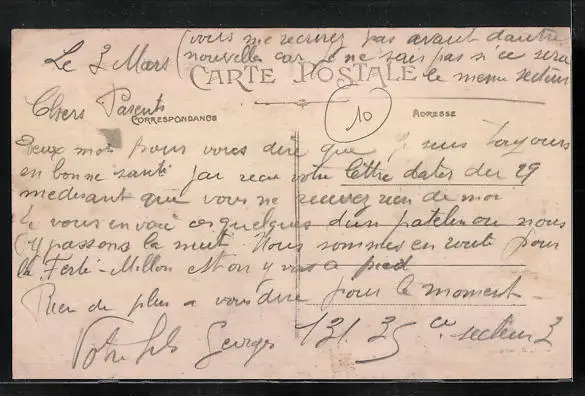 (vous me recrirez pas avant d'autre
Le 3 Mars nouvelles car je ne sais pas si ce sera
le meme secteur
CARTE POSTALE
10
Chers Parents
CORRESPONDANCE
ADRESSE
Deux mots pour vous dire que je suis toujours
en bonne santé j'ai recu votre lettre dater du 29
me disant que vous ne recevez rien de moi
Je vous envoie ces quelques d'un patelin ou nous
passons la nuit. Nous sommes en route pour
la Ferté-Millon et on y vas a pied
Rien de plus a vous dire pour le moment
Votre fils Georges 131 35 secteur 3